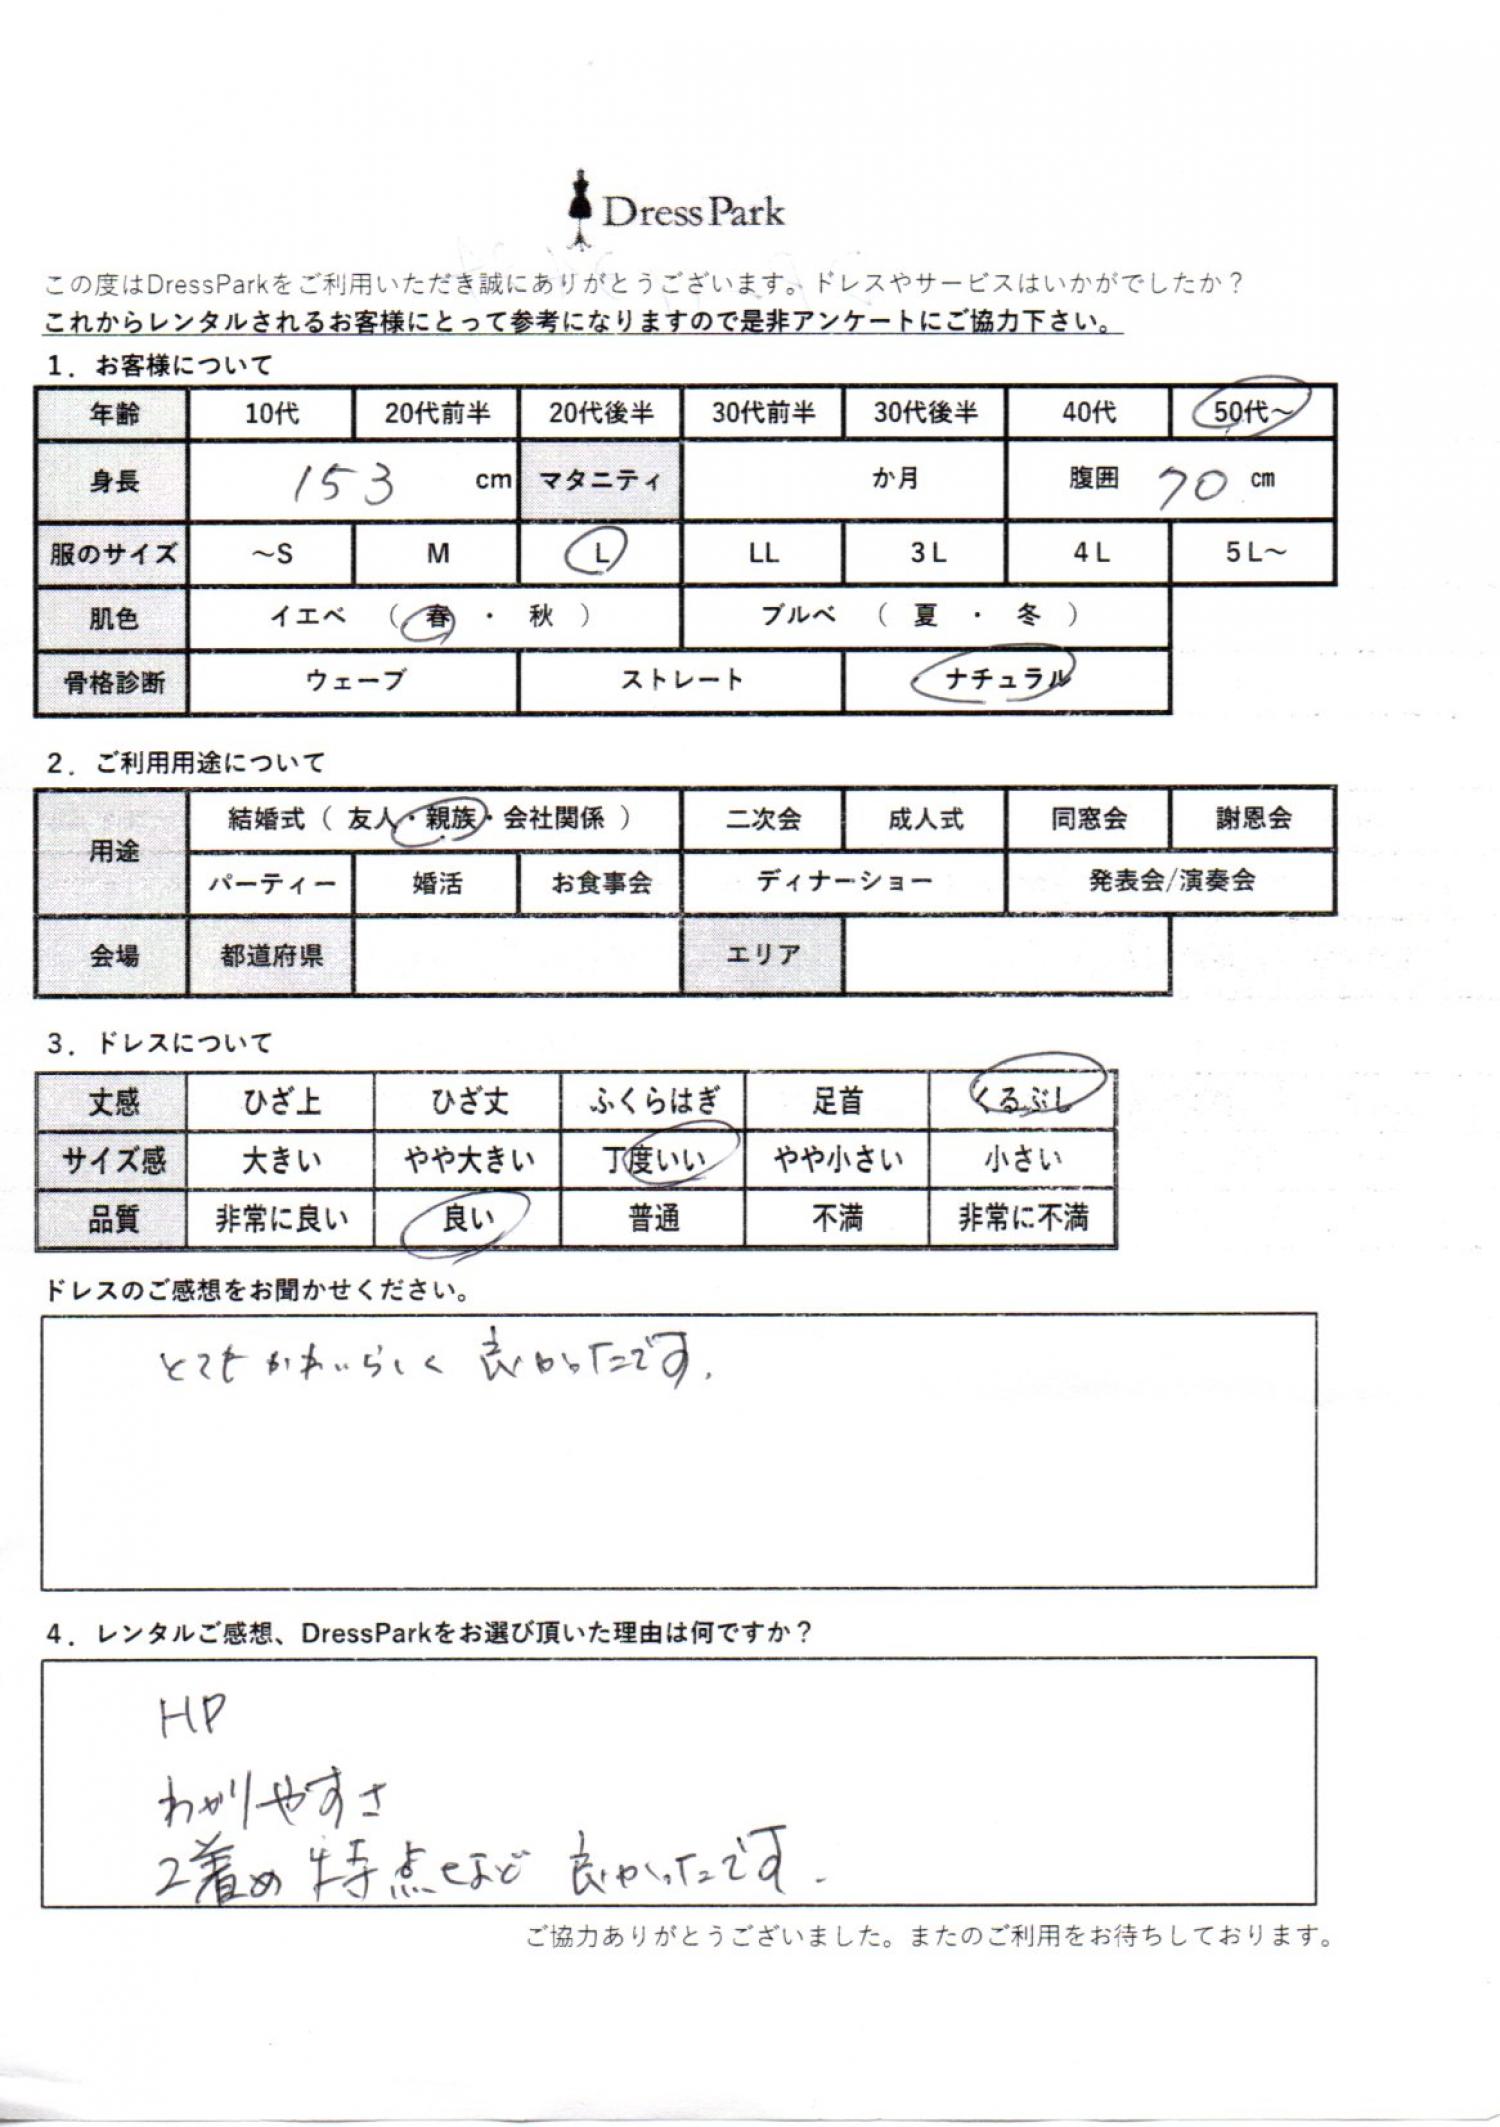 DressPark
この度はDressParkをご利用いただき誠にありがとうございます。ドレスやサービスはいかがでしたか？
これからレンタルされるお客様にとって参考になりますので是非アンケートにご協力下さい。
1．お客様について
年齢 10代 20代前半 20代後半 30代前半 30代後半 40代 50代～
身長 153 cm マタニティ か月 腹囲 70 cm
服のサイズ ～S M L LL 3L 4L 5L～
肌色 イエベ （ 春 ・ 秋 ） ブルベ （ 夏 ・ 冬 ）
骨格診断 ウェーブ ストレート ナチュラル
2．ご利用用途について
用途 結婚式（ 友人・親族・会社関係 ） 二次会 成人式 同窓会 謝恩会
パーティー 婚活 お食事会 ディナーショー 発表会/演奏会
会場 都道府県 エリア
3．ドレスについて
丈感 ひざ上 ひざ丈 ふくらはぎ 足首 くるぶし
サイズ感 大きい やや大きい 丁度いい やや小さい 小さい
品質 非常に良い 良い 普通 不満 非常に不満
ドレスのご感想をお聞かせください。
とてもかわいらしく 良かったです.
4．レンタルご感想、DressParkをお選び頂いた理由は何ですか？
HP
わかりやすさ
2着め 特点など 良かったです.
ご協力ありがとうございました。またのご利用をお待ちしております。